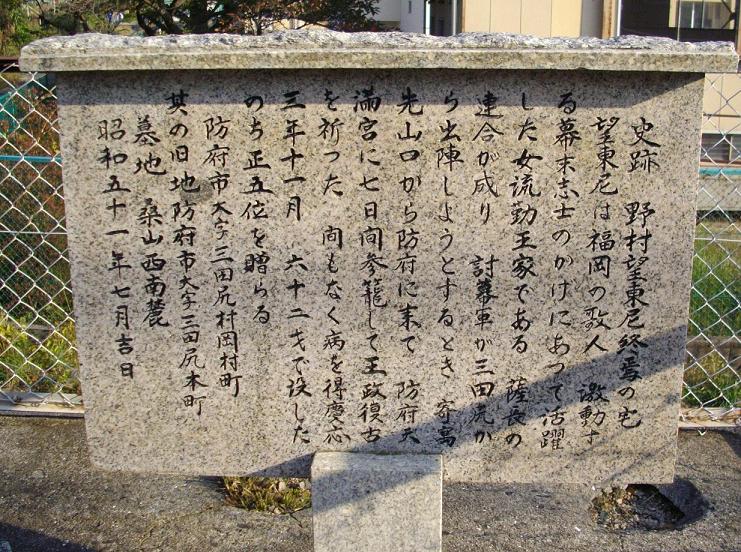 史跡　野村望東尼終焉の宅
望東尼は福岡の歌人　激動す
る幕末志士のかげにあって活躍
した女流勤王家である　薩長の
連合が成り　討幕軍が三田尻か
ら出陣しようとするとき　寄寓
先山口から防府に来て　防府天
満宮に七日間参籠して王政復古
を祈った　間もなく病を得慶応
三年十一月　六十二才で没した
のち正五位を贈らる
防府市大字三田尻村岡村町
其の旧地防府市大字三田尻本町
墓地　桑山西南麓
昭和五十一年七月吉日